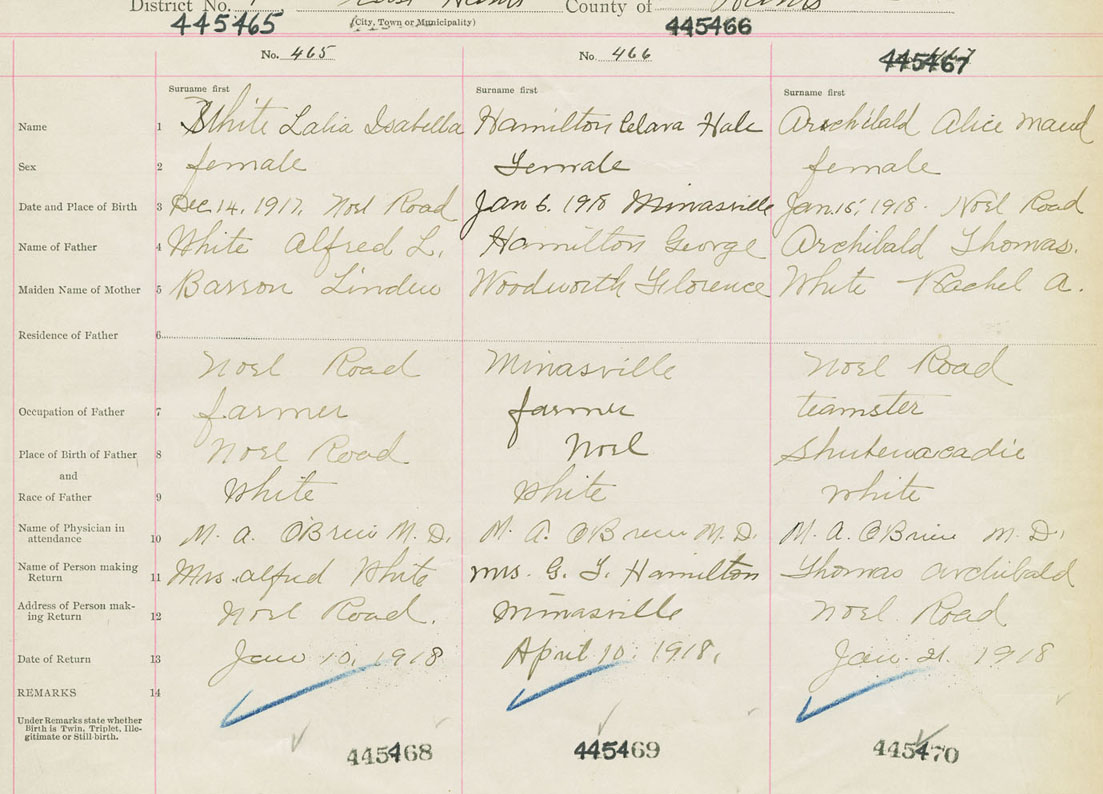 District No. County of Hants
445465 (City, Town or Municipality) 445466
No. 465 No. 466 445467
Surname first Surname first Surname first
Name 1 White Lalia Isabella Hamilton Clara Hale Archibald Alice Maud
Sex 2 female Female female
Date and Place of Birth 3 Dec. 14, 1917. Noel Road Jan 6. 1918 Minasville Jan. 15, 1918. Noel Road
Name of Father 4 White Alfred L. Hamilton George Archibald Thomas.
Maiden Name of Mother 5 Barron Hamilton Woodworth Florence White Rachel A.
Residence of Father 6
Noel Road Minasville Noel Road
Occupation of Father 7 farmer farmer teamster
Place of Birth of Father 8 Noel Road Noel Shubenacadie
and
Race of Father 9 White White White
Name of Physician in
attendance 10 M. A. O'Brien M. D. M. A. O'Brien M. D. M. A. O'Brien M. D.
Name of Person making
Return 11 Mrs. Alfred White Mrs. G. F. Hamilton Thomas Archibald
Address of Person mak-
ing Return 12 Noel Road. Minasville Noel Road
Date of Return 13 Jan 10, 1918 April 10. 1918. Jan. 21 1918
REMARKS 14
Under Remarks state whether
Birth is Twin, Triplet, Ille-
gitimate or Still-birth.
445468 445469 445470